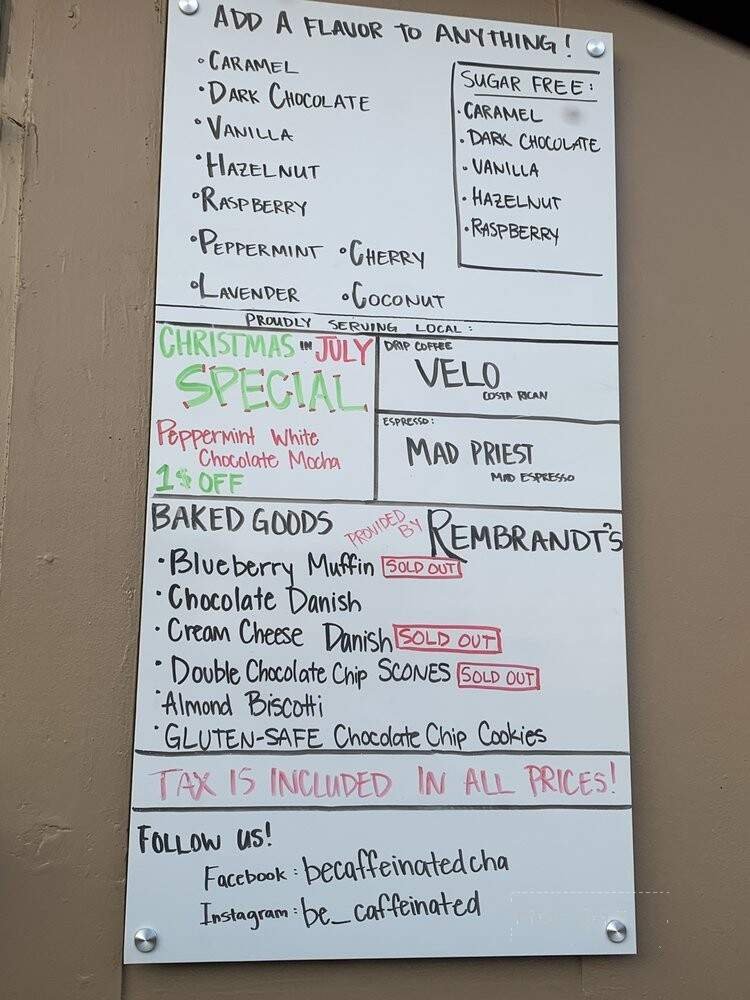 ADD A FLAVOR TO ANYTHING!
• CARAMEL
• DARK CHOCOLATE
• VANILLA
• HAZELNUT
• RASPBERRY
• PEPPERMINT • CHERRY
• LAVENDER • COCONUT
SUGAR FREE:
• CARAMEL
• DARK CHOCOLATE
• VANILLA
• HAZELNUT
• RASPBERRY
PROUDLY SERVING LOCAL:
CHRISTMAS IN JULY
SPECIAL
Peppermint White
Chocolate Mocha
1$ OFF
DRIP COFFEE
VELO
COSTA RICAN
ESPRESSO:
MAD PRIEST
MAD ESPRESSO
BAKED GOODS PROVIDED BY REMBRANDT'S
• Blueberry Muffin SOLD OUT
• Chocolate Danish
• Cream Cheese Danish SOLD OUT
• Double Chocolate Chip SCONES SOLD OUT
• Almond Biscotti
• GLUTEN-SAFE Chocolate Chip Cookies
TAX IS INCLUDED IN ALL PRICES!
FOLLOW US!
Facebook: becaffeinatedcha
Instagram: be_caffeinated